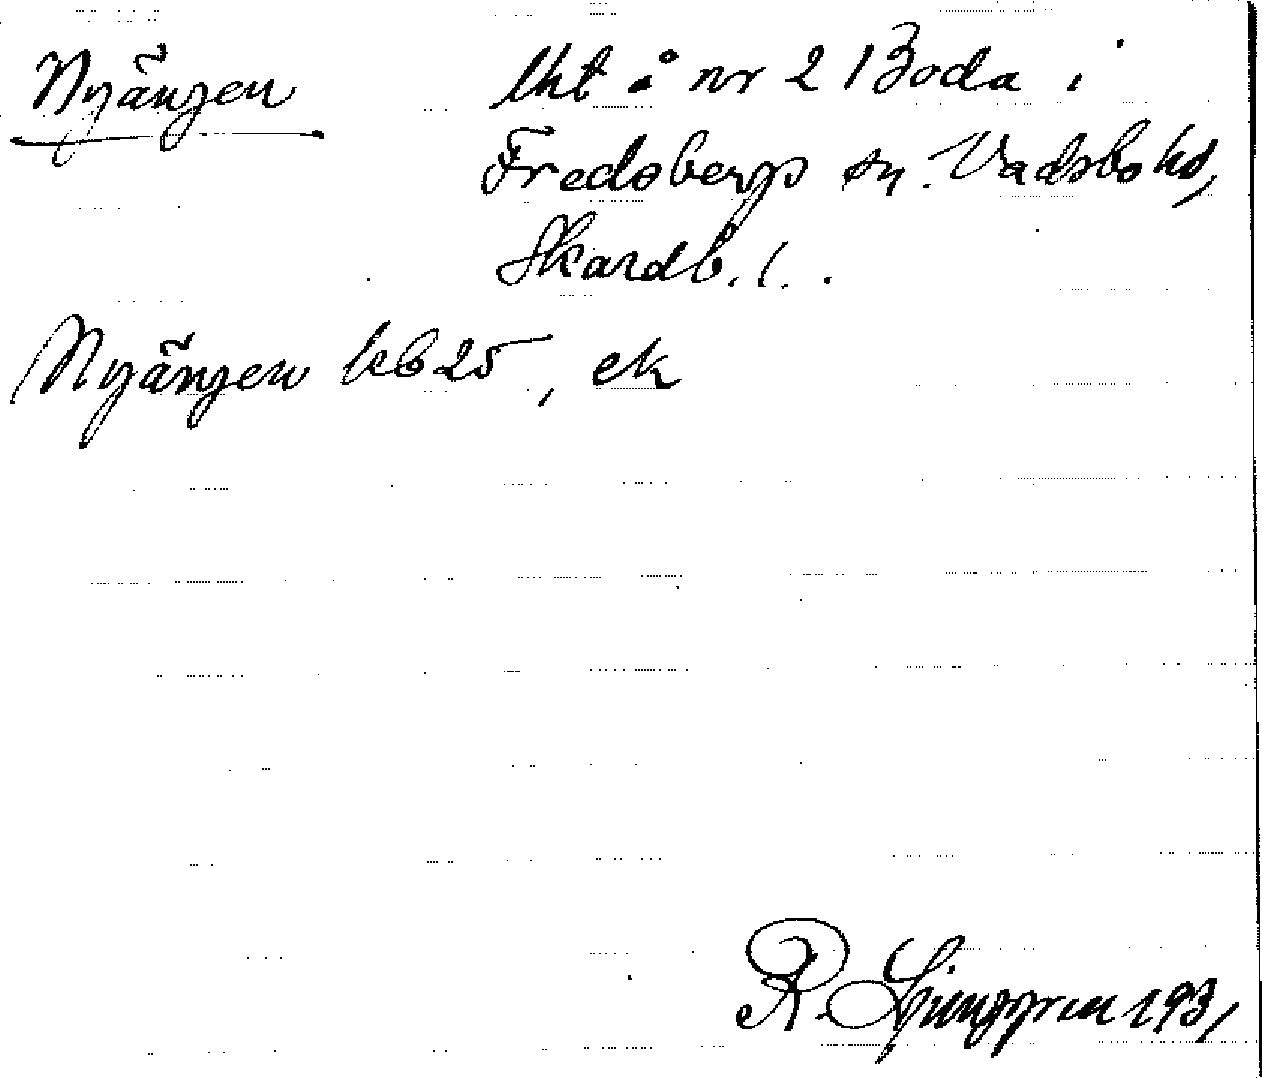 Nyängen lht å nr 2 Boda i
Fredsbergs sn. Vadsbo hd,
Skarab. l.
Nyängen kb 25, ek
R. Ljunggren 1931